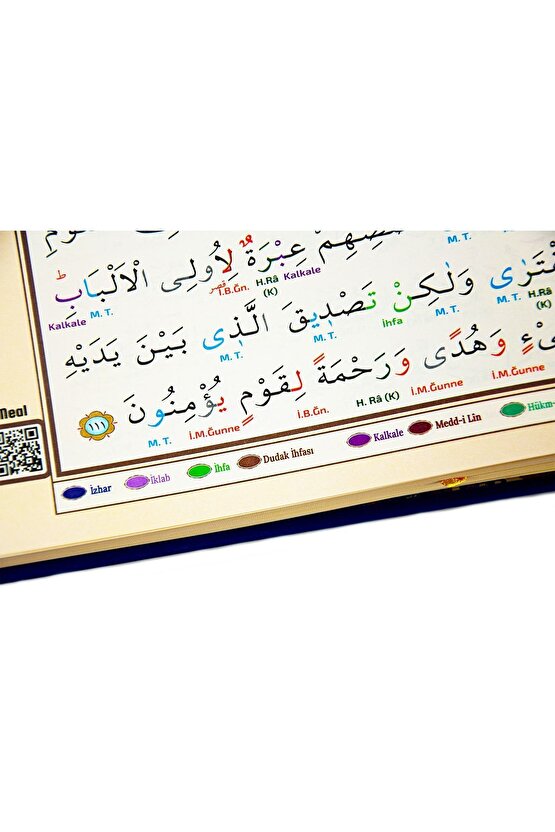 قَصَصِهِمْ عِبْرَةٌ لِاُولِى الْاَلْبَابِ ط
M. T.
قصر
Kalkale M. T. İ.B.Ğn. H.Râ (K) Kalkale
وَلٰكِنْ تَصْدٖيقَ الَّذٖى بَيْنَ يَدَيْهِ
M. T. M. T. İhfa M. T. M. T. H.Râ (K)
وَهُدًى وَرَحْمَةً لِقَوْمٍ يُؤْمِنُونَ ١١١
M. T. İ.M.Ğunne İ.B.Ğn. H. Râ (K) İ.M.Ğunne İ.M.Ğunne
Meal
İzhar İklab İhfa Dudak İhfası Kalkale Medd-i Lin